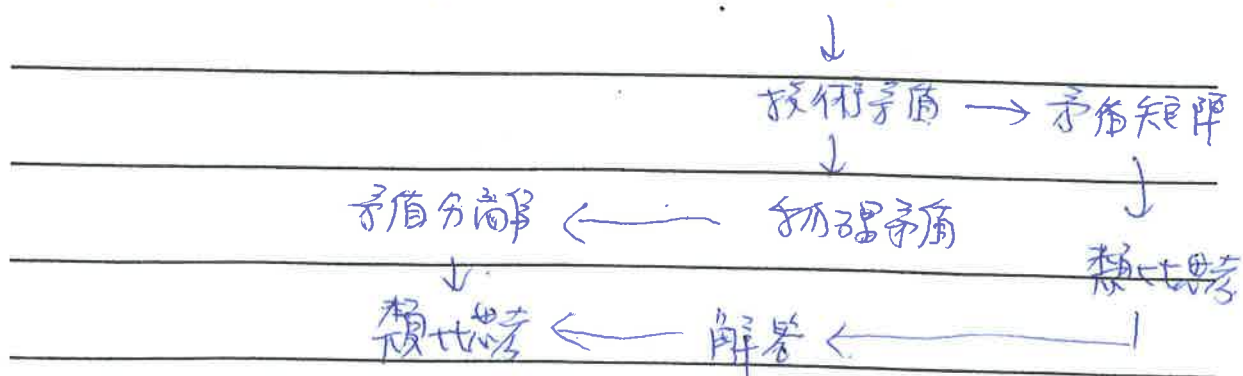 ↓
技術矛盾 → 矛盾矩陣
↓ ↓
矛盾分離 ← 物理矛盾
↓ 類比思考
類比思考 ← 解答 ←